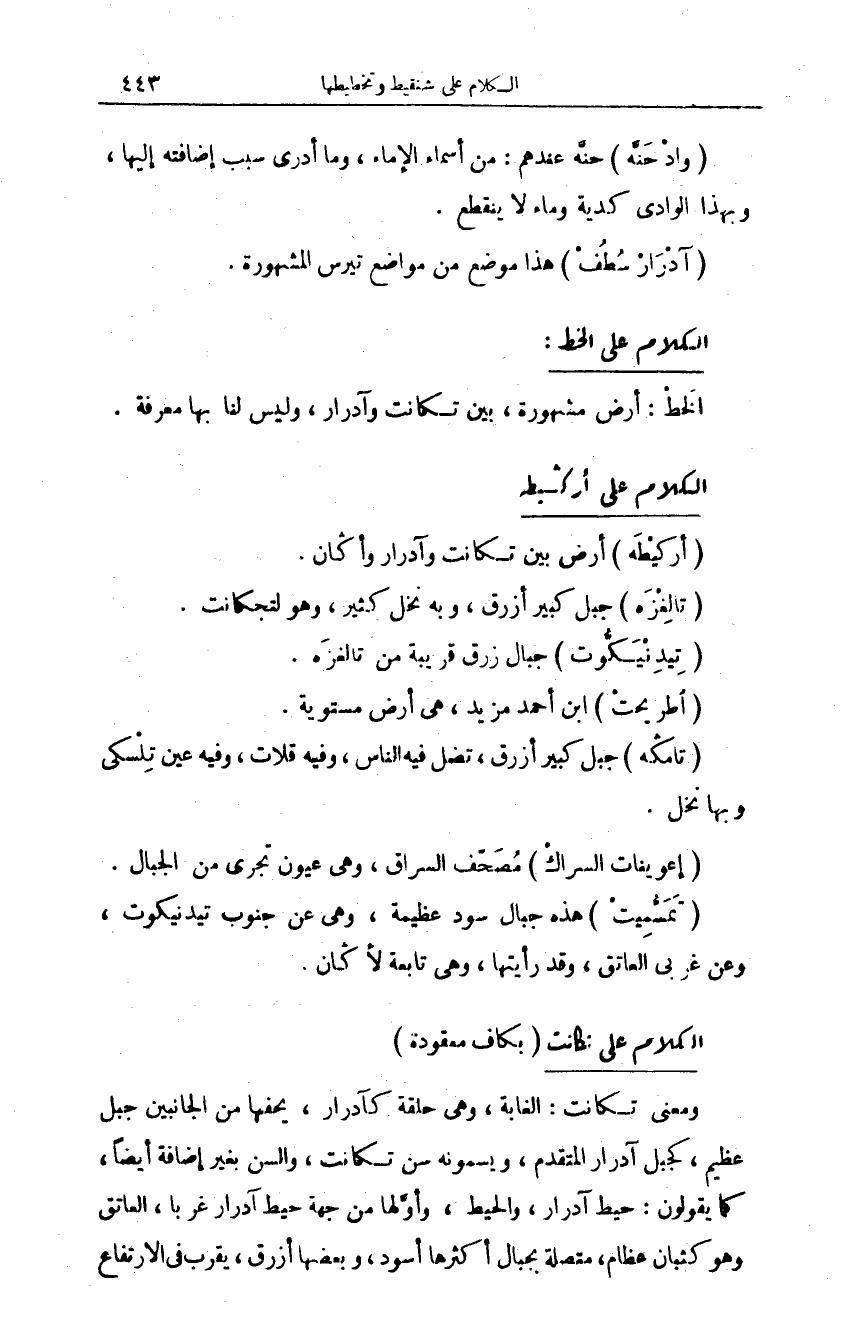 الكلام على شنقيط وتخطيطها ٤٤٣
( وادْ حَنَّه ) حنَّه عندهم : من أسماء الإماء ، وما أدرى سبب إضافته إليها ،
وبهذا الوادى كدية وماء لا ينقطع .
( آدْرَارْ سُطُفْ ) هذا موضع من مواضع تيرس المشهورة .
الكلام على الخط :
الَخطْ : أرض مشهورة ، بين تكانت وآدرار ، وليس لنا بها معرفة .
الكلام على أركيطه
( أركَيْطَه ) أرض بين تكانت وآدرار وأكان .
( تالِغْزَه ) جبل كبير أزرق ، وبه نخل كثير ، وهو لتجكانت .
( تِيدِنْيَكُّوت ) جبال زرق قريبة من تالغزَه .
( أطريحتْ ) ابن أحمد مزيد ، هى أرض مستوية .
( تامكه ) جبل كبير أزرق ، تضل فيه الناس ، وفيه قلات ، وفيه عين تِلْسكى
وبها نخل .
( إعويفات السراكْ ) مُصَحّف السراق ، وهى عيون تجرى من الجبال .
( تَمَسُّمِيتْ ) هذه جبال سود عظيمة ، وهى عن جنوب تيدنيكوت ،
وعن غربى العاتق ، وقد رأيتها ، وهى تابعة لأكان .
الكلام على تكانت ( بكاف معقودة )
ومعنى تكانت : الغابة ، وهى حلقة كآدرار ، يحفها من الجانبين جبل
عظيم ، كجبل آدرار المتقدم ، ويسمونه سن تكانت ، والسن بغير إضافة أيضاً ،
كما يقولون : حيط آدرار ، والحيط ، وأوّلها من جهة حيط آدرار غربا ، العاتق
وهو كثبان عظام، متصلة بجبال أكثرها أسود ، وبعضها أزرق ، يقرب فى الارتفاع